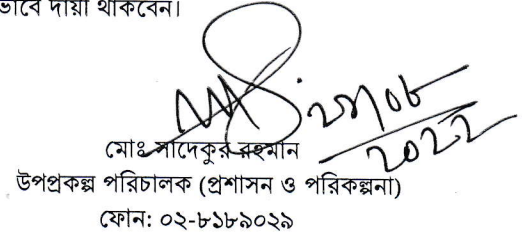 ভাবে দায়ী থাকবেন।
২০২২
মোঃ সাদেকুর রহমান
উপপ্রকল্প পরিচালক (প্রশাসন ও পরিকল্পনা)
ফোন: ০২-৮১৮৯০২৯